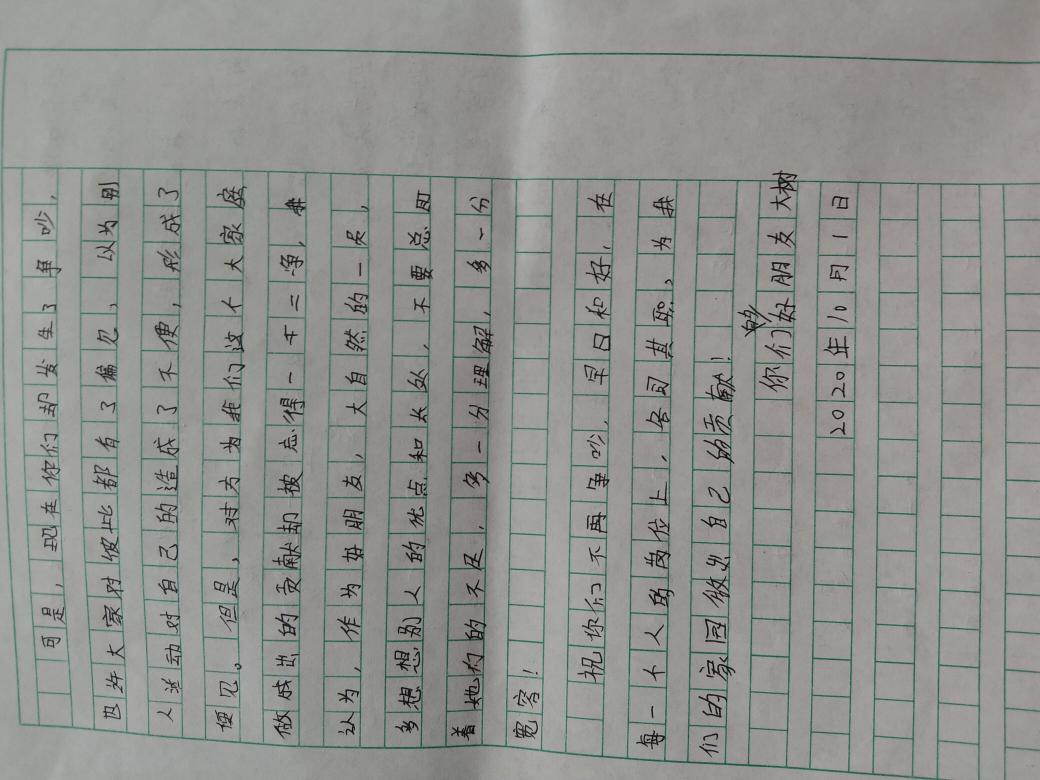 可是，现在你们却发生了争吵，
也许大家对彼此都有了偏见，以为别
人运动对自己的造成了不便，形成了
便见。但是，对方为我们这个大家庭
做成出的贡献却被忘得一干二净，我
认为，作为好朋友，大自然的一员，
多想想别人的优点和长处，不要总盯
着她们的不足，多一分理解，多一分
宽容！
祝你们不再争吵，早日和好，在
每一个人的岗位上，各司其职，为我
们的家园做出自己的贡献！
你们的好朋友大树
2020年10月1日